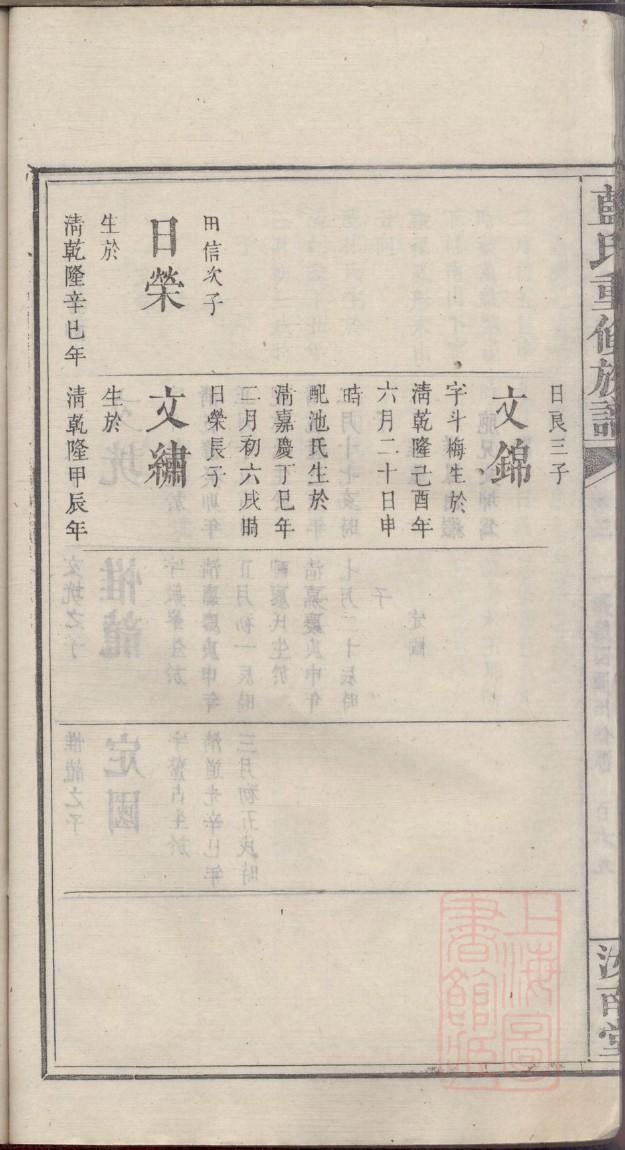 藍氏重修族譜
汝南堂
田信次子
日榮
生於
清乾隆辛巳年
日良三子
文錦
字斗梅生於
清乾隆己酉年
六月二十日申
時
配池氏生於
清嘉慶丁巳年
二月初六戌時
日榮長子
文繡
生於
清乾隆甲辰年
上海圖
書館藏